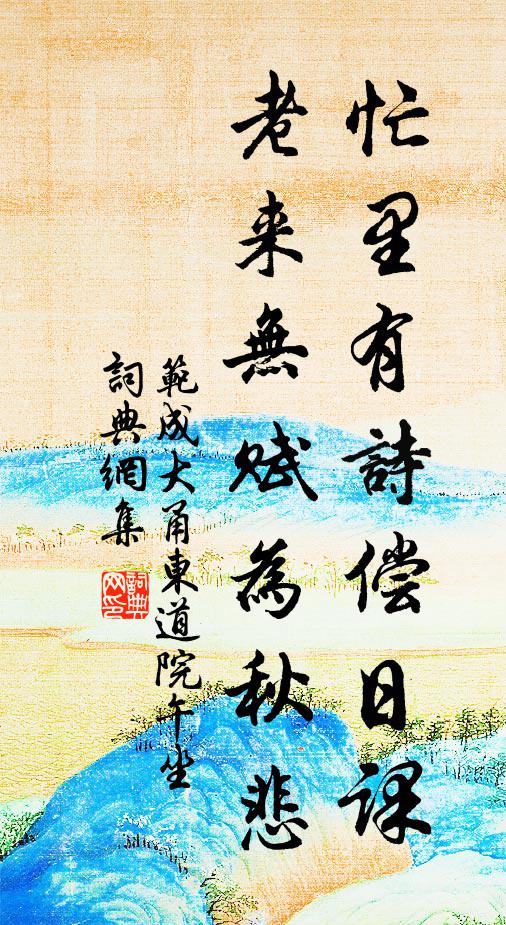 忙里有詩偿日课
老来無赋為秋悲
範成大甬東道院午坐
詞典網集
詞典网印